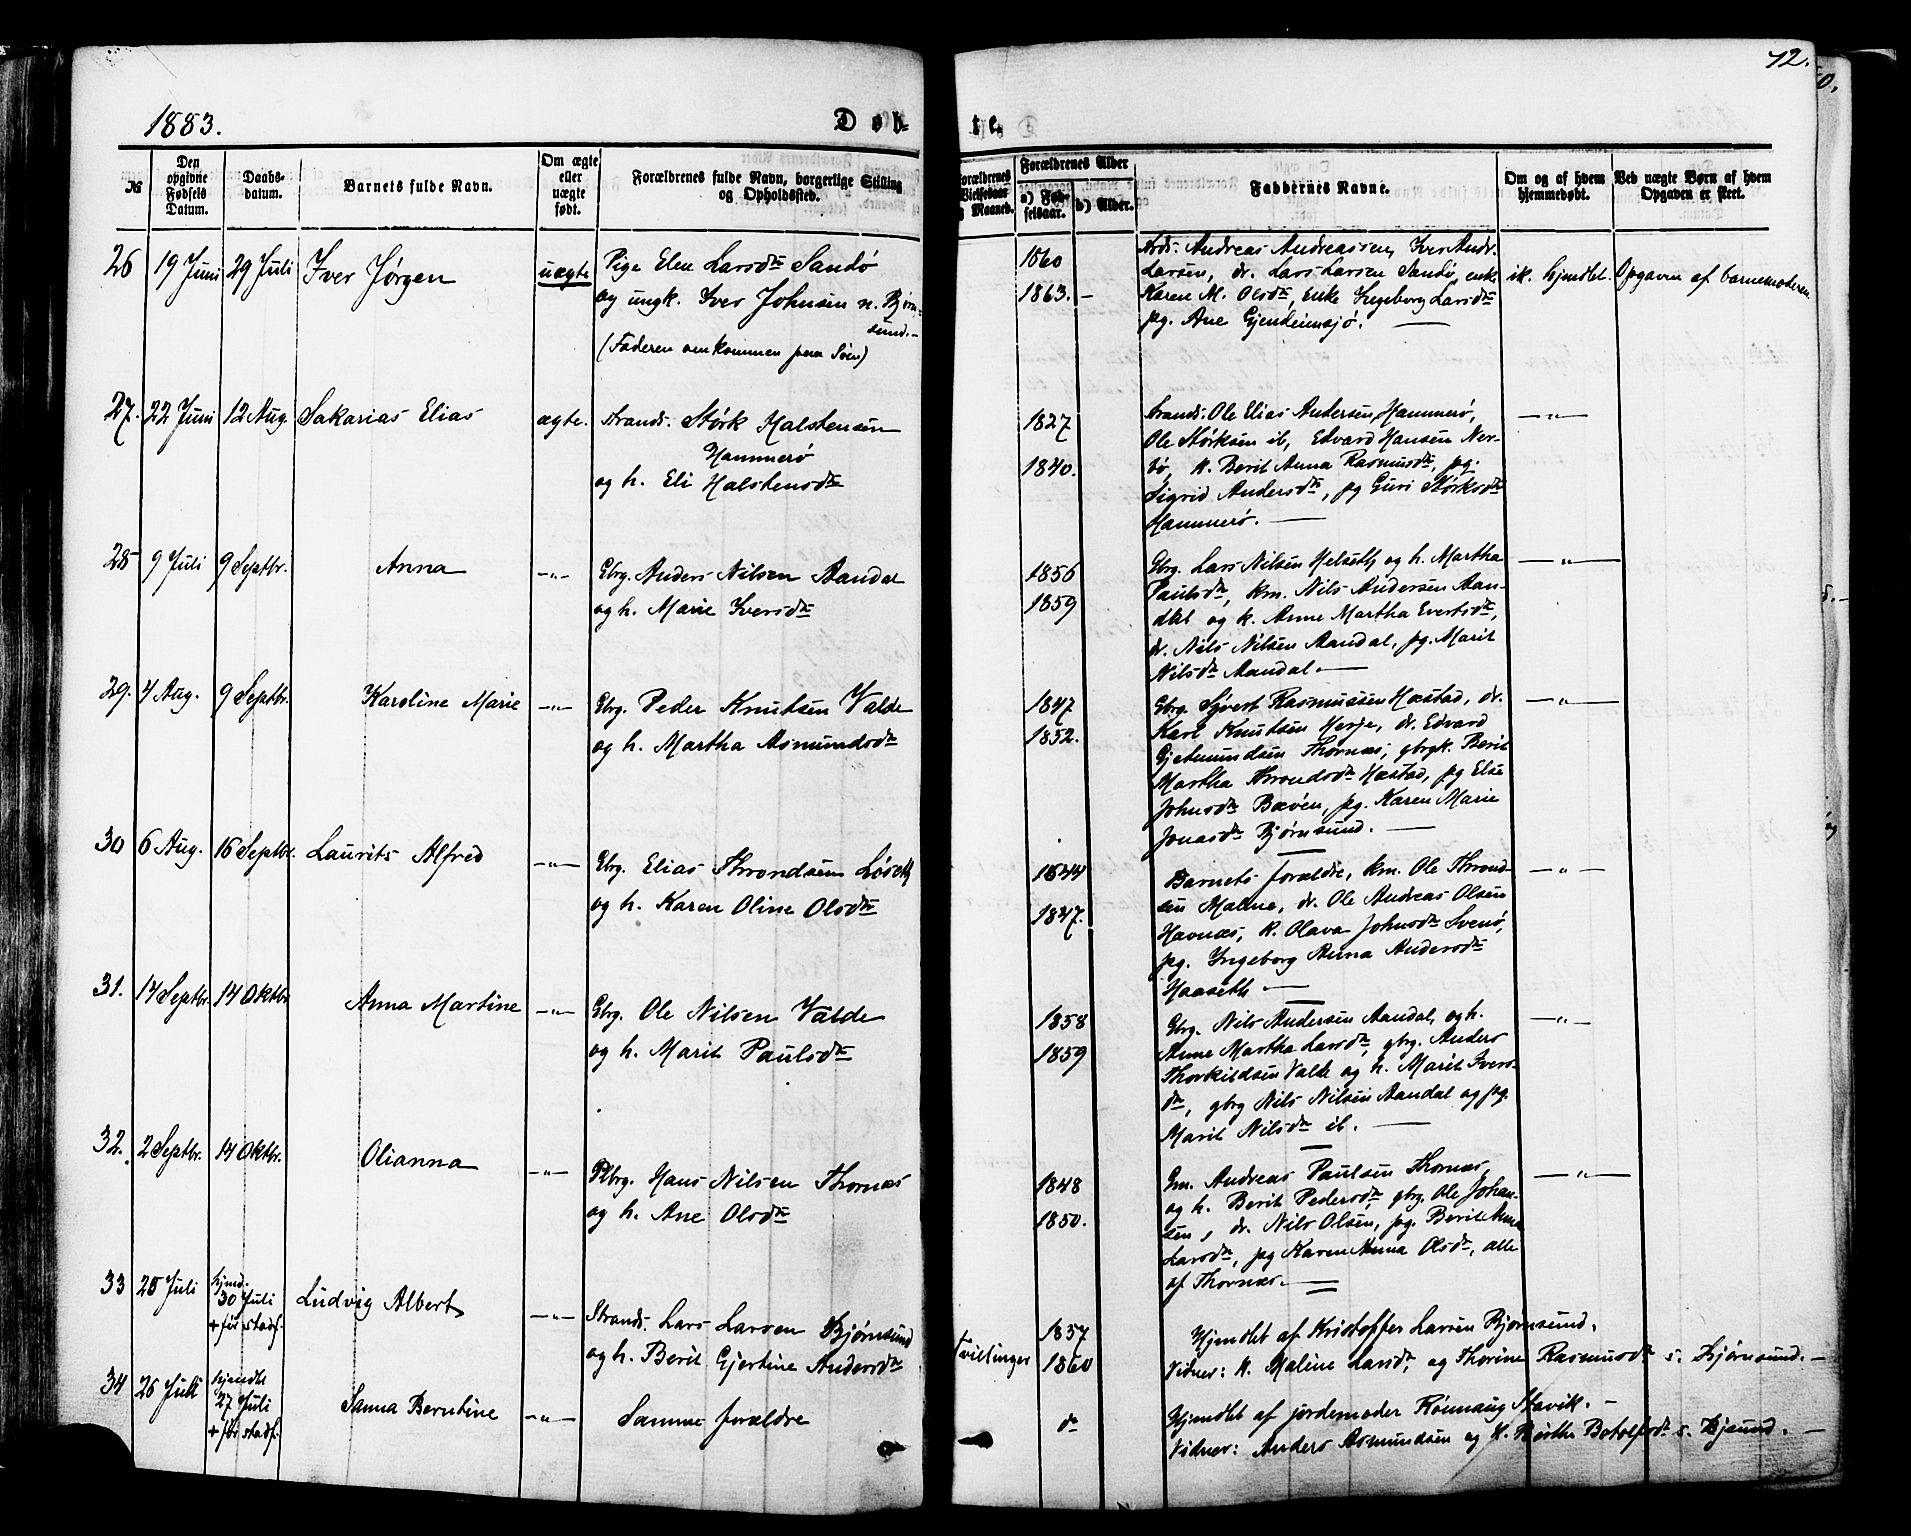 72.
1883.
Døb-
te.
№
Den opgivne Fødsels Datum.
Daabs-datum.
Barnets fulde Navn.
Om ægte eller uægte født.
Forældrenes fulde Navn, borgerlige Stilling og Opholdssted.
Forældrenes Vielsesaar og Maaned.
Forældrenes Alder
a) Fødselsaar.
b) Alder.
Faddernes Navne.
Om og af hvem hjemmedøbt.
Ved uægte Børn af hvem Opgaven er skeet.
26 19 Juni 29 Juli Iver Jørgen uægte Pige Elen Larsdtr Sandø
og ungk. Iver Johnsen n. Bjørn-
sund.-
(Faderen omkommen paa Søen)
1860
1863. -
Strds. Andreas Andreassen, Iver Andr.
Larsen, dr. Lars Larsen Sandø, enke
Karen M. Olsdtr, Enke Ingeborg Larsdtr
pg. Ane Gjendemsjø. —
ik. hjemdbt. Opgaven af barnemoderen
27. 22 Juni 12 Aug. Sakarias Elias ægte. Strands. Størk Halstensen
Hammerø
og h. Eli Halstensdtr
1827
1840.
Strands. Ole Elias Andersen Hammerø,
Ole Størksen ib, Edvard Hansen Ner-
bø, k. Berit Anna Rasmusdtr, pg.
Sigrid Andersdtr, pg Guri Størksdtr
Hammerø. —
—"—
28 9 Juli 9 Septbr. Anna —"— Gbrg. Anders Nilsen Aandal
og h. Marie Iversdtr
1856
1859
Gbrg. Lars Nilsen Helseth og h. Martha
Paulsdtr, km. Nils Andersen Aan-
dal og k. Anne Martha Evertsdtr,
dr. Nils Nilsen Aandal, pg. Marit
Nilsdtr Aandal. —
—"—
29. 4 Aug. 9 Septbr. Karoline Marie —"— Gbrg. Peder Knutsen Valde
og h. Martha Asmundsdtr
1847
1852.
Gbrg. Sivert Rasmussen Hæstad, dr.
Karl Knutsen Herje, dr. Edvard
Gjetmundsen Thornæs, gbrgk. Berit
Martha Throndsdtr Hæstad, pg Else
Johnsdtr Bævøen, pg. Karen Marie
Jonasdtr Bjørnsund. —
—"—
30 6 Aug. 16 Septbr. Laurits Alfred —"— Gbrg. Elias Throndsen Løseth
og h. Karen Oline Olsdtr
1844
1847.
Barnets forældre, km. Ole Thrond-
sen Malme, dr. Ole Andreas Olsen
Havnæs, k. Olava Johnsdtr Svenø,
pg. Ingeborg Anna Andersdtr
Haaseth —
—"—
31. 14 Septbr. 14 Oktbr. Anna Martine —"— Gbrg. Ole Nilsen Valde
og h. Marit Paulsdtr
1858
1859
Gbrg. Nils Andersen Aandal, og h.
Anne Martha Larsdtr, gbrg. Anders
Thorkildsen Valde og h. Marit Ivers-
dtr, gbrg Nils Nilsen Aandal og pg.
Marit Nilsdtr ib. —
—"—
32. 2 Septbr. 14 Oktbr. Olianna —"— Plbrg. Hans Nilsen Thornæs
og h. Ane Olsdtr
1848
1850.
Gm. Andreas Paulsen Thornæs,
og h. Berit Pedersdtr, gbrg. Ole Johan-
sen, dr. Nils Olsen, pg. Berit Anna
Larsdtr, pg Karen Anna Olsdtr, alle
af Thornæs. —
—"—
33 25 Juli hjmd. 30 Juli + før stadf. Ludvig Albert —"— Strands. Lars Larsen Bjørnsund
og h. Berit Gjertine Andersdtr
Tvillinger
1857
1860
Hjemdbt af Kristoffer Larsen Bjørnsund.
Vidner: k. Maline Larsdtr, og Thorine Rasmusdtr s. Bjørnsund. —
34 25 Juli hjemdbt 27 Juli + før stadf. Sanna Berntine —"— Samme forældre
do
Hjemdbt af jordemoder Rønnaug Stavik. —
Vidner: Anders Asmundsen og k. Berthe Botolfsdtr s. Bjsund. —